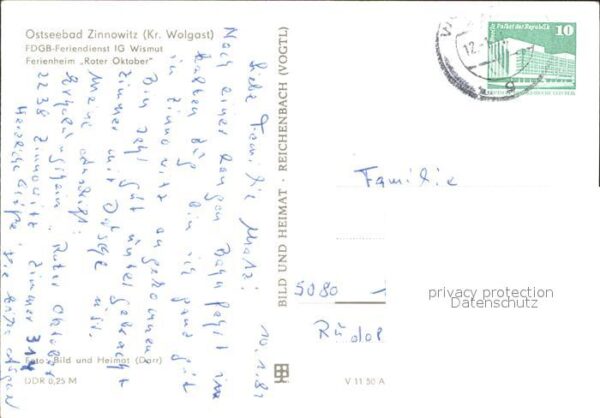 Ostseebad Zinnowitz (Kr. Wolgast)
FDGB-Feriendienst IG Wismut
Ferienheim „Roter Oktober"
10.1.81
Liebe Familie
Nach einer langen Bahnfahrt im
kalten Zug bin ich ganz gut
in Zinnowitz angekommen.
Bin jetzt gut untergebracht
Zimmer mit
Meine Anschrift:
Erholungsheim Roter Oktober
2238 Zinnowitz Zimmer 314
Herzliche Grüße
Foto: Bild und Heimat (Dorr)
DDR 0,25 M
BILD UND HEIMAT REICHENBACH (VOGTL)
V 11 50 A
Palast der Republik
10
12.
9
Familie
5080
privacy protection
Datenschutz